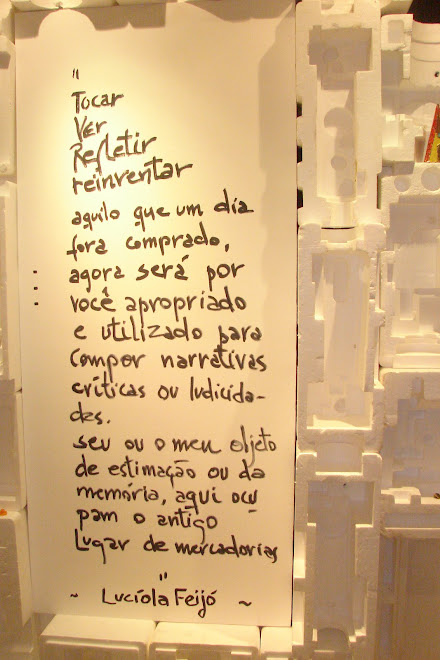 "
Tocar
Ver
Refletir
reinventar
aquilo que um dia
fora comprado,
agora será por
você apropriado
e utilizado para
compor narrativas
críticas ou ludicida-
des.
seu ou o meu objeto
de estimação ou da
memória, aqui ocu
pam o antigo
Lugar de mercadorias
"
~ Lucíola Feijó ~